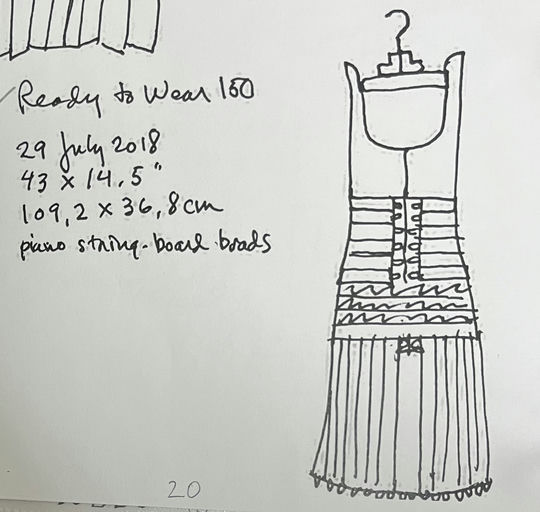 Ready to Wear 150
29 July 2018
43 x 14.5"
109,2 x 36,8cm
piano string. board. brads
20